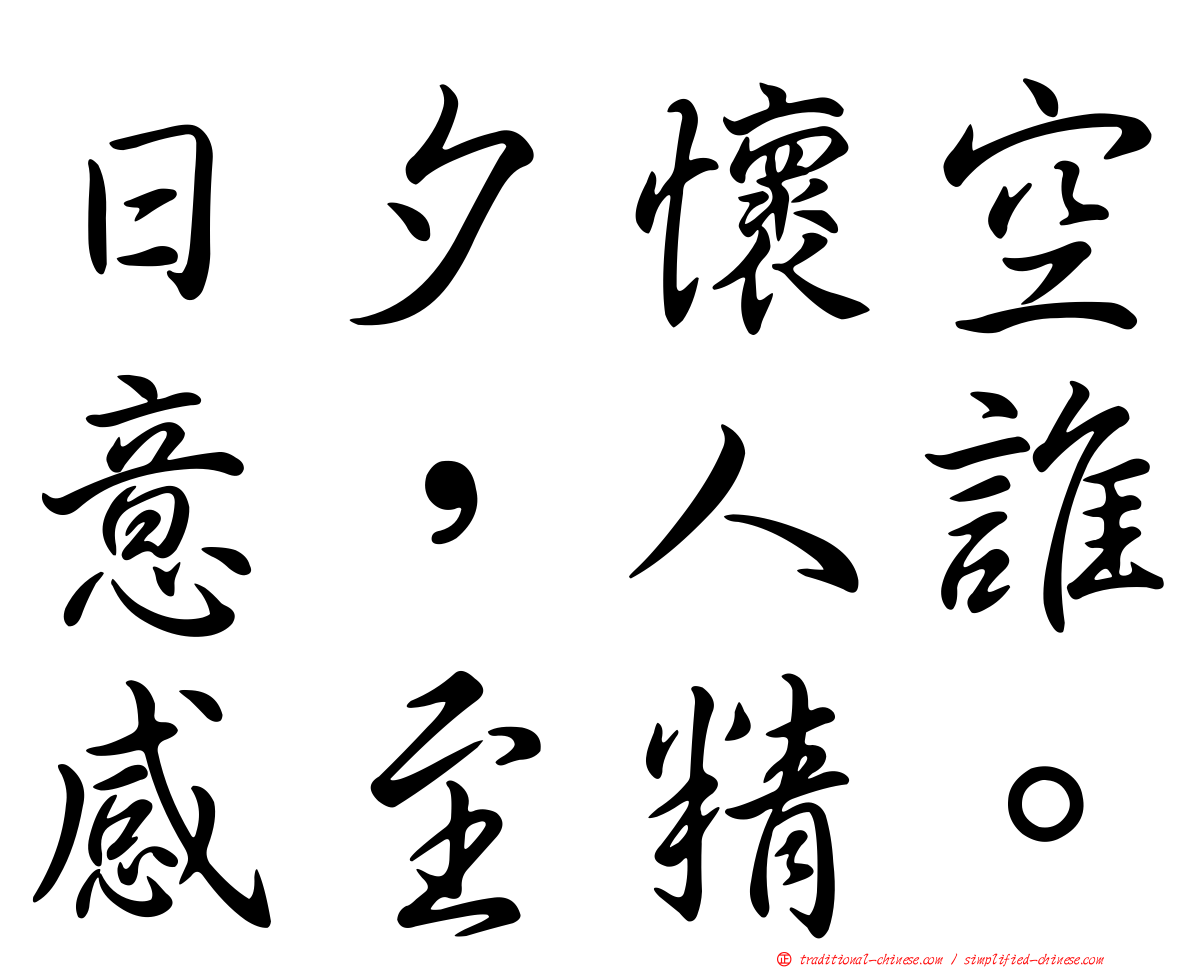 日夕懷空
意，人誰
感至精。
㊣ traditional-chinese.com / simplified-chinese.com